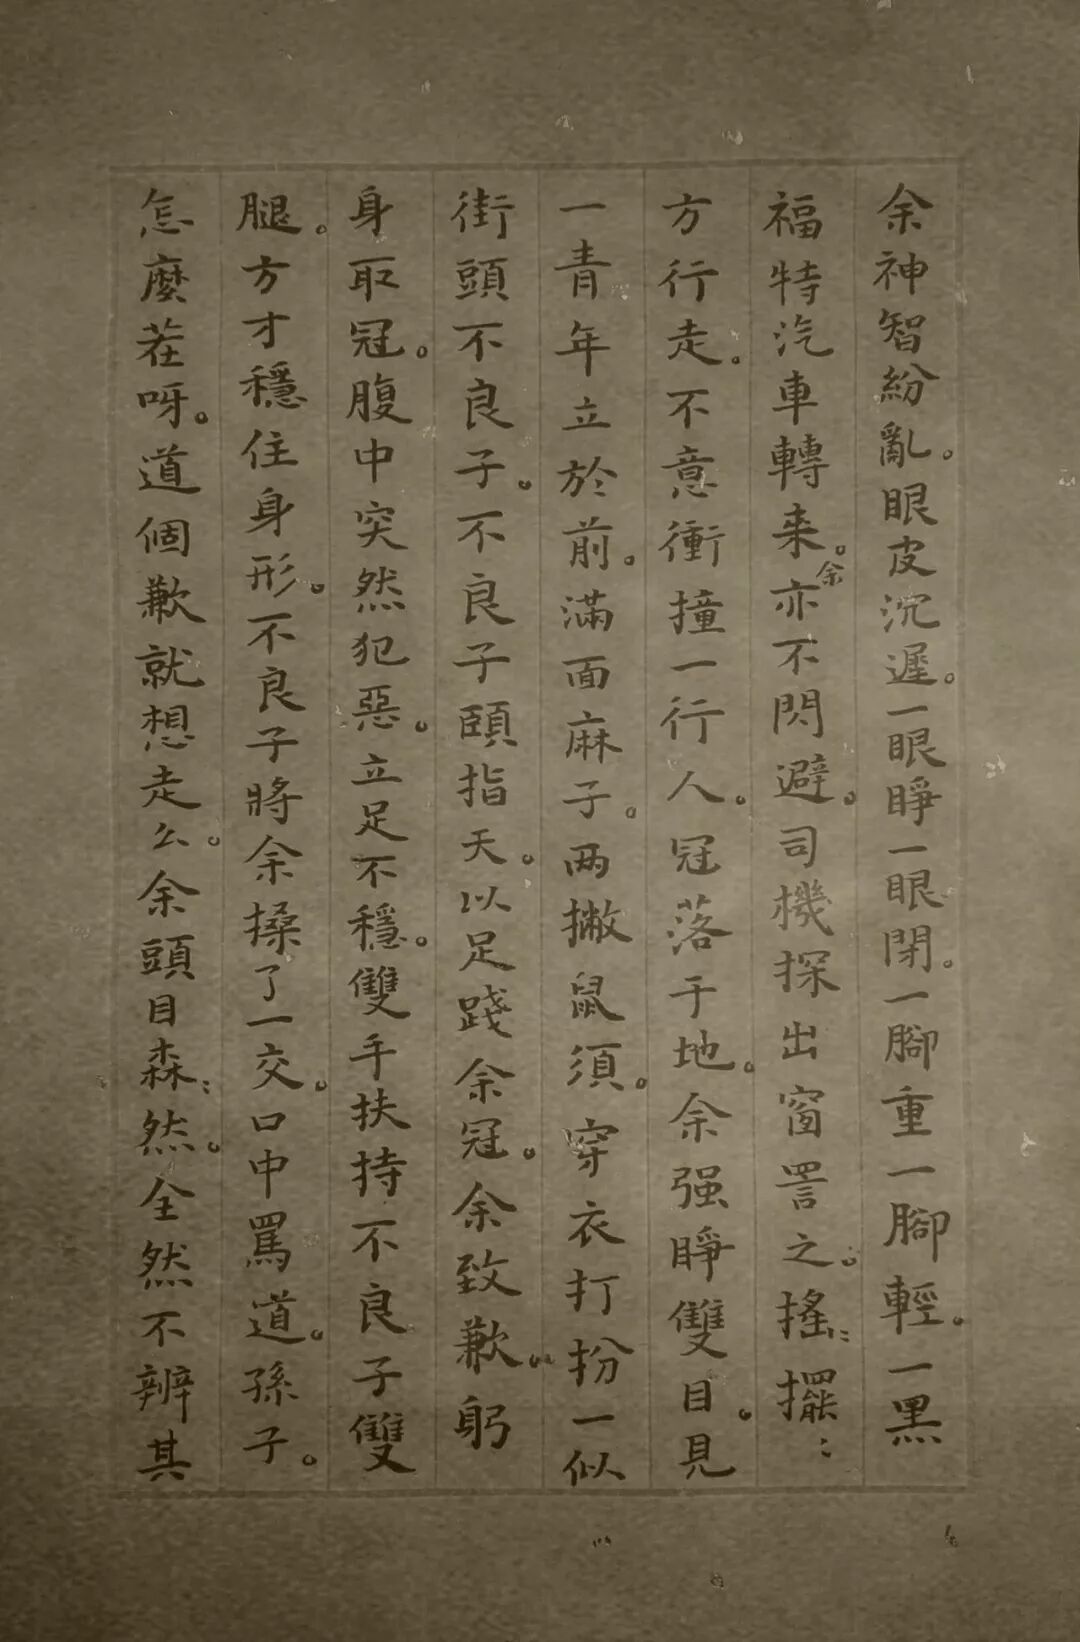 余神智紛亂。眼皮沉遲。一眼睜一眼閉。一腳重一腳輕。一黑
福特汽車轉来。余亦不閃避。司機探出窗詈之。搖:擺:
方行走。不意衝撞一行人。冠落于地。余强睜雙目。見
一青年立於前。滿面麻子。两撇鼠須。穿衣打扮一似
街頭不良子。不良子頤指天。以足踐余冠。余致歉。躬
身取冠。腹中突然犯惡。立足不穩。雙手扶持不良子雙
腿。方才穩住身形。不良子將余搡了一交。口中罵道。孫子。
怎麼茬呀。道個歉就想走么。余頭目森:然。全然不辨其